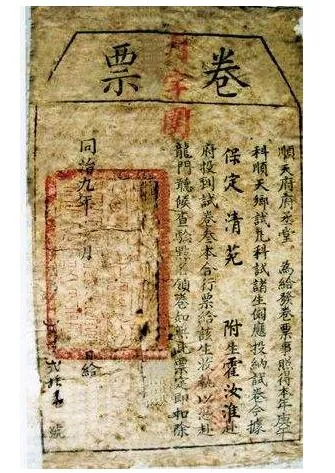 卷票
順天府府丞堂 為給發卷票事照得本年庚午
科順天鄉試凡科試諸生例應投納試卷合據
保定 清苑 附生霍汝淮赴
府投到試卷叁本合行票給該生收執以憑赴
龍門聽候查驗點名領卷如無此票定即扣除
同治九年 月 日給
號